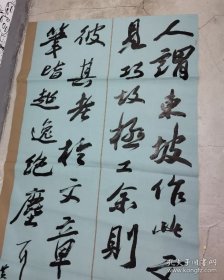 人謂東坡作此文
見巧故極工余則
彼其老於文章
筆皆超逸絕塵